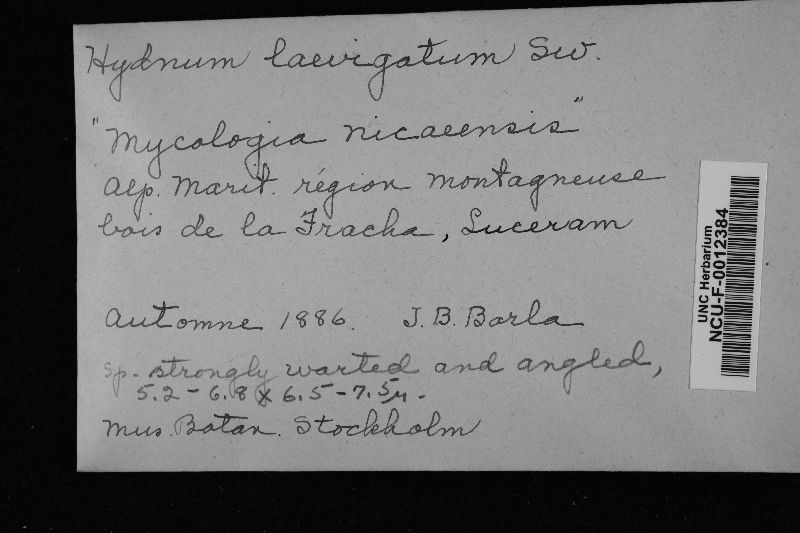 Hydnum laevigatum Sw.
"Mycologia nicaeensis"
Alp. Marit. région montagneuse
bois de la Fracha, Luceram
Automne 1886. J. B. Barla
Sp. strongly warted and angled,
5.2 - 6.8 x 6.5 - 7.5µ.
Mus. Botan. Stockholm
UNC Herbarium
NCU-F-0012384